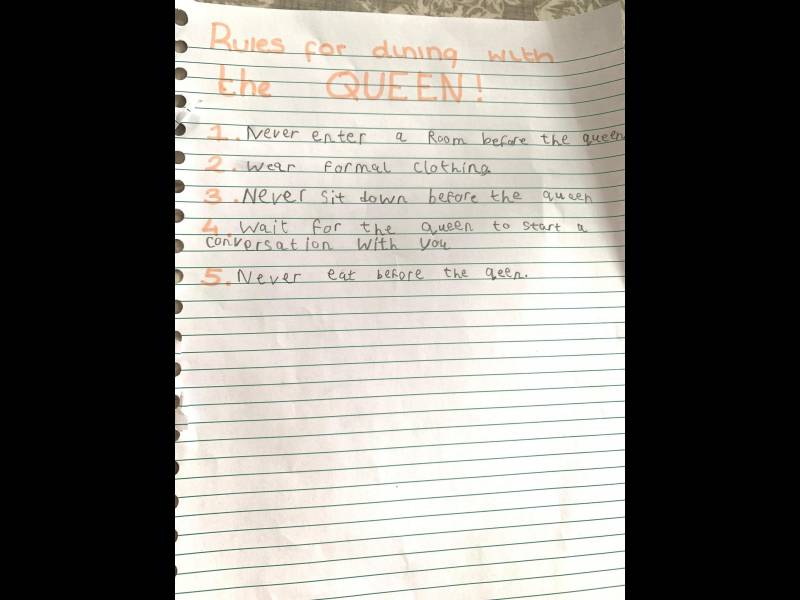 Rules for dining with
the QUEEN!
1. Never enter a Room before the queen
2. Wear formal clothing
3. Never sit down before the queen
4. Wait for the queen to start a
conversation with you
5. Never eat before the qeen.